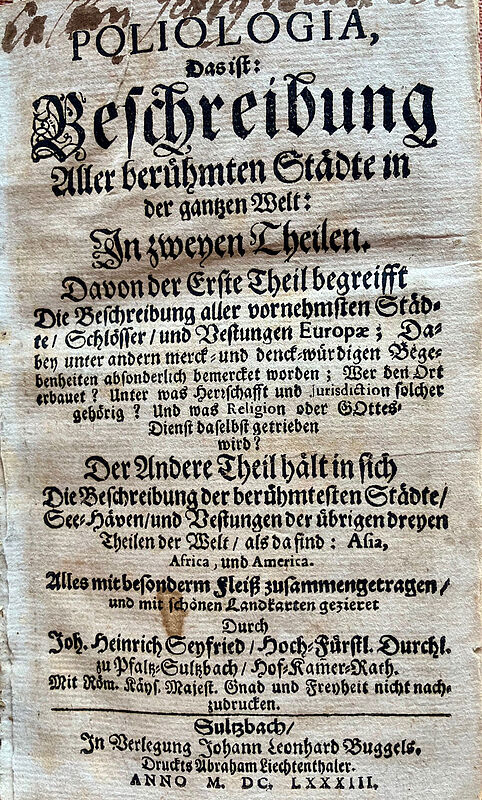 POLIOLOGIA,
Das ist:
Beschreibung
Aller berühmten Städte in
der gantzen Welt:
In zweyen Theilen.
Davon der Erste Theil begreifft
Die Beschreibung aller vornehmsten Städ-
te/ Schlösser/ und Vestungen Europæ; Da-
bey unter andern merck- und denck-würdigen Bege-
benheiten absonderlich bemercket worden; Wer den Ort
erbauet? Unter was Herrschafft und Jurisdiction solcher
gehörig? Und was Religion oder GOttes-
Dienst daselbst getrieben
wird?
Der Andere Theil hält in sich
Die Beschreibung der berühmtesten Städte/
See-Häven/und Vestungen der übrigen dreyen
Theilen der Welt/ als da sind: Asia,
Africa, und America.
Alles mit besonderm Fleiß zusammengetragen/
und mit schönen Landkarten gezieret
Durch
Joh. Heinrich Seyfried/ Hoch-Fürstl. Durchl.
zu Pfaltz-Sultzbach/ Hof-Kamer-Rath.
Mit Röm. Käys. Majest. Gnad und Freyheit nicht nach-
zudrucken.
Sultzbach/
In Verlegung Johann Leonhard Buggels.
Druckts Abraham Liechtenthaler.
ANNO M. DC. LXXXIII.